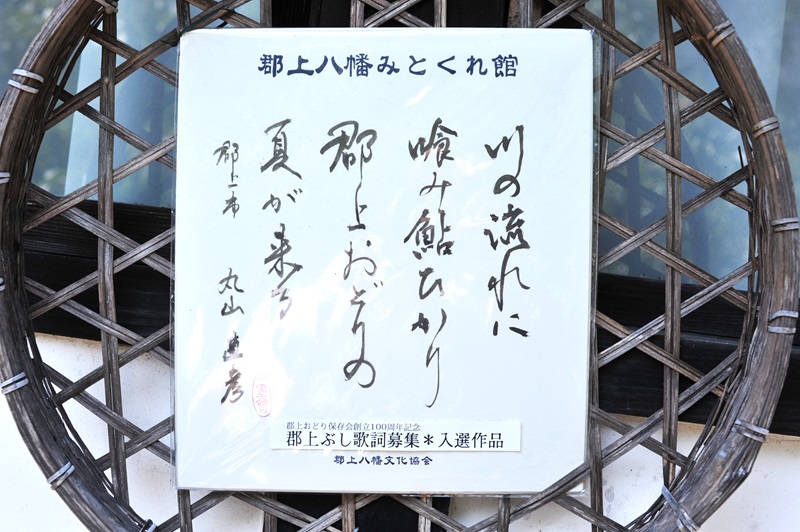 郡上八幡みとくれ館
川の流れに
喰み鮎ひかり
郡上おどりの
夏が来る
郡上市 丸山 直孝
郡上おどり保存会創立100周年記念
郡上ぶし歌詞募集＊入選作品
郡上八幡文化協会